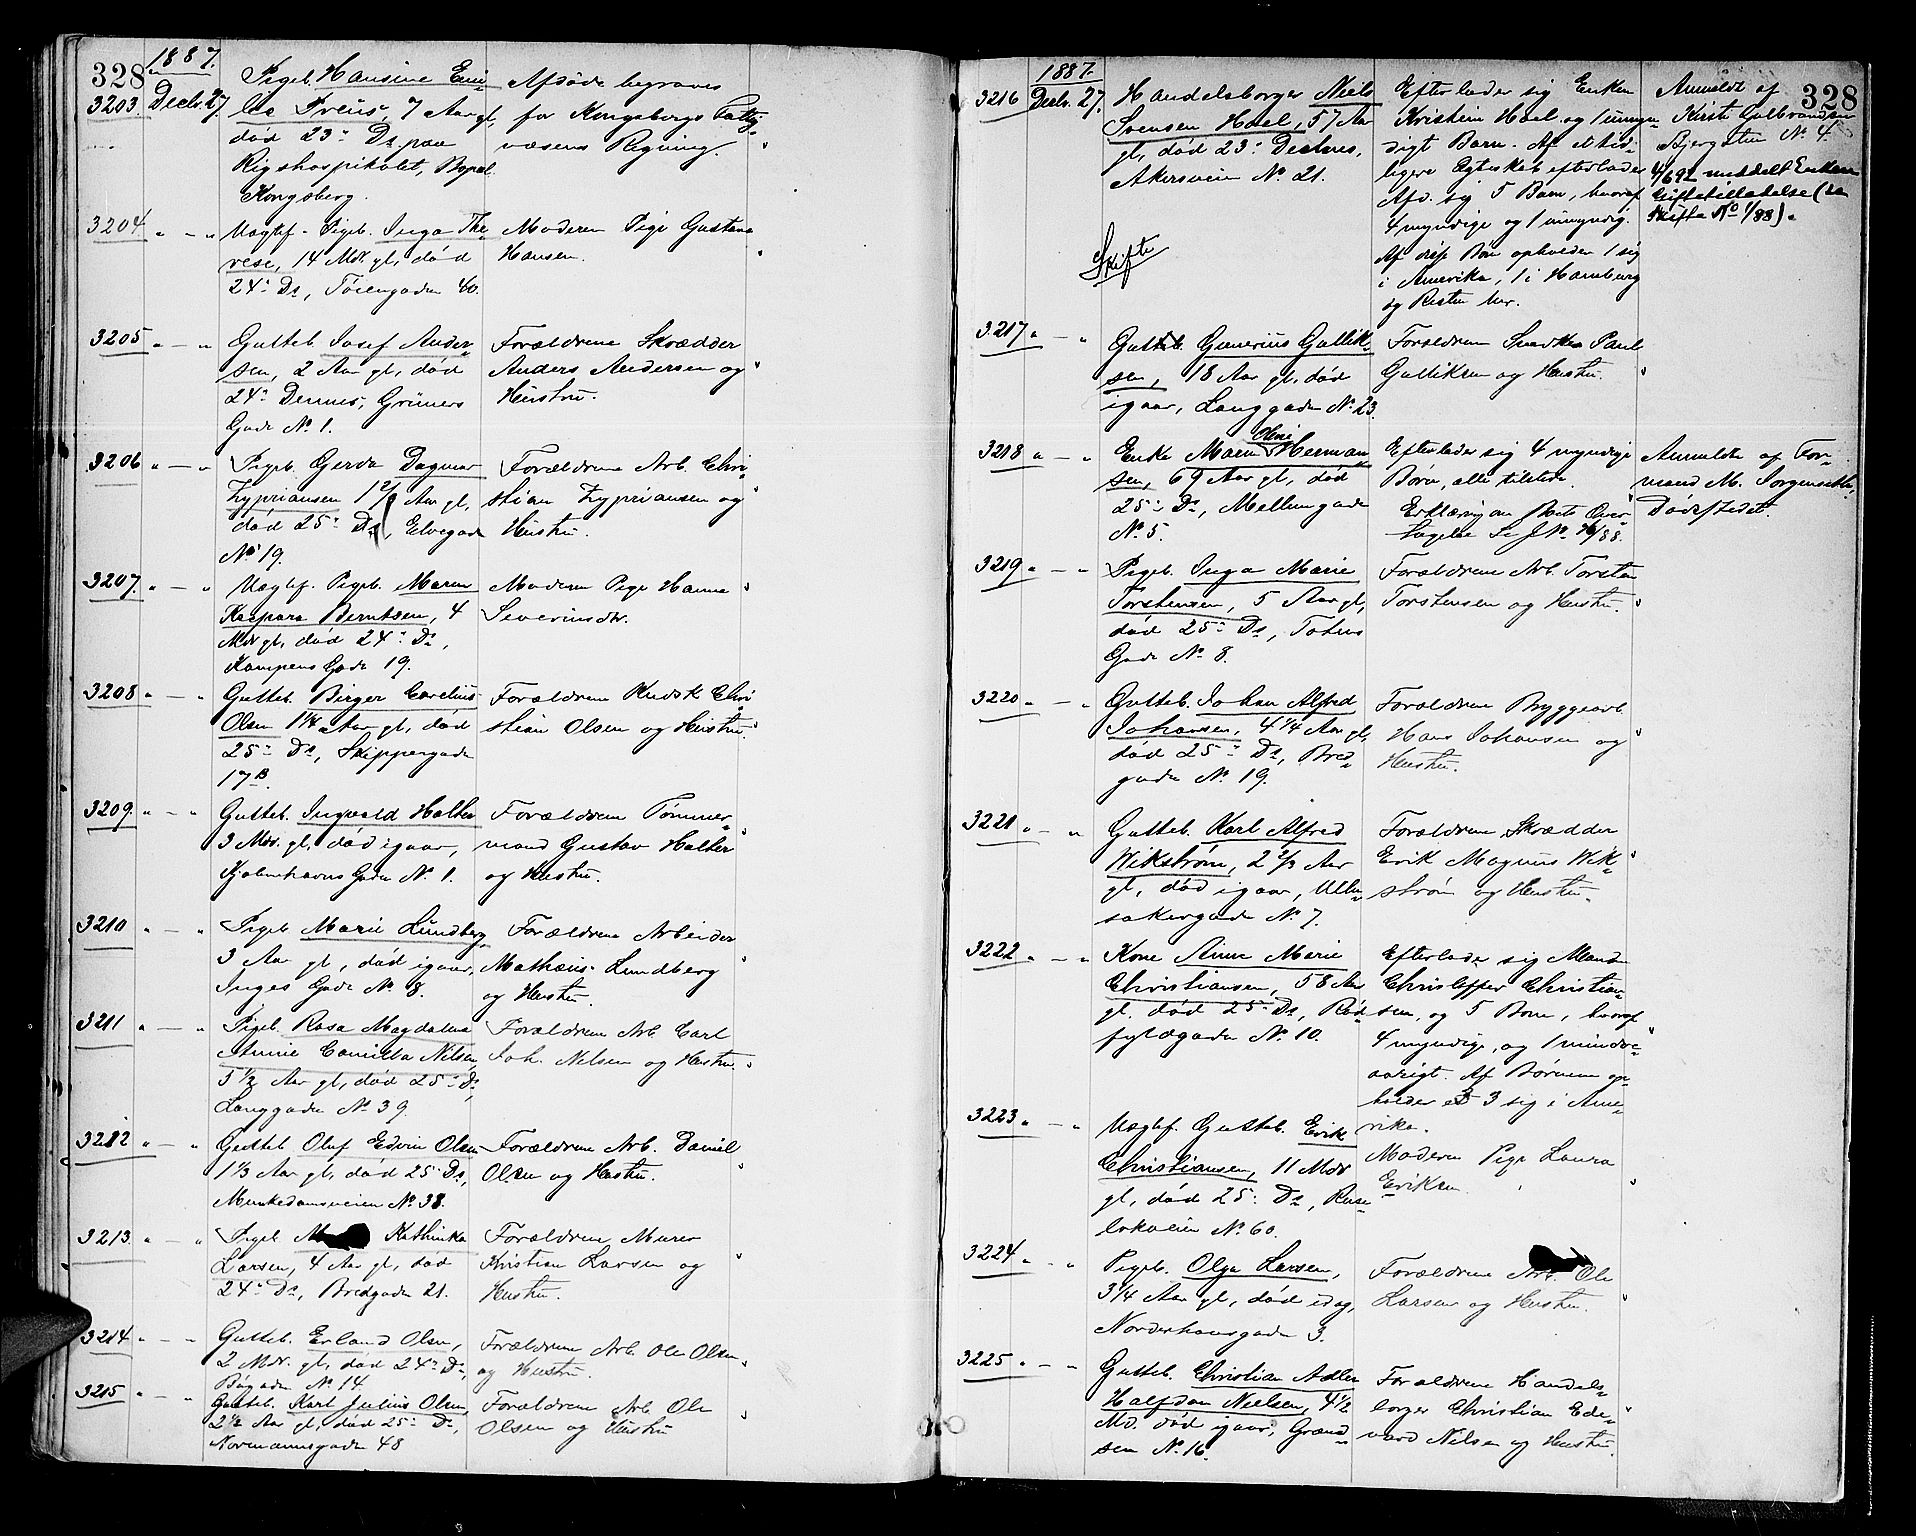 328
1887.
3203. Decbr. 27. Pigeb. Hansine Emi-
lie Freiis, 7 Aar gl,
død 23de Ds. paa
Rigshospitalet, Bopæl
Kongsberg.
Afdøde begraves
for Kongsbergs Fattig-
væsens Regning.
3204 " — " Uægtef. Pigeb. Inga The-
rese, 14 Mdr gl, død
24de Ds, Tøiengaden 40.
Moderen Pige Gustava
Hansen.
3205 " — " Gutteb. Josef Ander-
sen, 2 Aar gl, død
24de Dennes, Grüners
Gade No 1.
Forældrene Skrædder
Anders Andersen og
Hustru.
3206 " — " Pigeb. Gerda Dagmar
Zypriansen 1 Aar gl,
død 25de Ds, Elvegade
No 19.
Forældrene Arb. Chri-
stian Zypriansen og
Hustru.
3207. " — " Uægtef. Pigeb. Maren
Kaspara Berntsen, 4
Mdr gl, død 24de Ds,
Kampens Gade 19.
Moderen Pige Hanna
Severinsdtr.
3208 " — " Gutteb. Birger Cornelius
Olsen 1 1/4 Aar gl, død
25de Ds, Skippergade
17B.
Forældrene Kudsk Chri-
stian Olsen og Hustru.
3209. " — " Gutteb. Ingvald Halter
3 Mdr. gl, død igaar,
Kjøbenhavns Gade No 1.
Forældrene Tømmer-
mand Gustav Halter
og Hustru.
3210 " — " Pigeb. Marie Lundberg
3 Aar gl, død igaar,
Inges Gade No 8.
Forældrene Arbeider
Mathæus Lundberg
og Hustru.
3211 " — " Pigeb. Rosa Magdalena
Annie Camilla Nilsen,
5 1/2 Aar gl, død 25de Ds,
Langgaden No 39.
Forældrene Arb. Carl
Joh. Nilsen og Hustru.
3212 " — " Gutteb. Oluf Edvin Olsen
1 1/3 Aar gl, død 25 Ds,
Munkedamsveien No 38.
Forældrene Arb. Daniel
Olsen og Hustru.
3213. " — " Pigeb. Kathinka
Larsen, 4 Aar gl, død
24de Ds, Bredgaden 21.
Forældrene Murer
Kristian Larsen og
Hustru.
3214 " — " Gutteb. Erland Olsen,
2 Mdr. gl, død 24de Ds,
Bøgaden No 14.
Forældrene Arb. Ole Olsen
og Hustru.
3215 " — " Gutteb. Karl Julius Olsen,
2 1/2 Aar gl, død 25de Ds,
Normannsgaden 48
Forældrene Arb. Ole
Olsen og Hustru
328
1887.
3216 Decbr. 27. Handelsborger Niels
Svensen Hoel, 57 Aar
gl, død 23de Dennes,
Akersveien No 21.
Skifte
Efterlader sig Enken
Kristein Hoel og 1 umyn-
digt Barn. Af et tid-
ligere Egteskab efterlader
Afd. sig 5 Børn, hvoraf
4 myndige og 1 umyndig.
Af disse Børn opholder 1 sig
i Amerika, 1 i Hamburg
og Resten her.
Anmeldt af
Kirsti Gulbrandsen
Bjergstien No 4.
4/6 92 meddelt Enken
Giftetilladelse (se
Skifte No 1/88).
3217 " — " Gutteb. Gunerius Gullik-
sen, 18 Aar gl, død
igaar, Langgaden No 23.
Forældrene Snedker Paul
Gulliksen og Hustru.
3218 " — " Enke Maren Oline Herman-
sen, 69 Aar gl, død
25de Ds, Mellemgade
No 5.
Efterlader sig 4 myndige
Børn, alle tilstede.
Erklæring om Boets Over-
tagelse se J No 16/88.
Anmeldte af For-
mand M. Jorgensen,
Dødsstedet.
3219 " — " Pigeb. Inga Marie
Torstensen, 5 Aar gl,
død 25de Ds, Totens
Gade No 8.
Forældrene Arb. Torsten
Torstensen og Hustru.
3220 " — " Gutteb. Johan Alfred
Johansen, 4 1/4 Aar gl,
død 25de Ds, Bred-
gade No 19.
Forældrene Byggearb.
Hans Johansen og
Hustru.
3221 " — " Gutteb. Karl Alfred
Wikstrøm, 2 2/3 Aar
gl, død igaar, Ullen-
sakergade No 7.
Forældrene Skrædder
Erik Magnus Wik-
strøm og Hustru.
3222 " — " Kone Anne Marie
Christiansen, 58 Aar
gl. død 25de Ds, Rød-
fyldgaden No 10.
Efterlader sig Mand
Christoffer Christian-
sen, og 5 Børn, hvoraf
4 myndige, og 1 mindre-
aarigt. Af Børnene op-
holder 3 sig i Ame-
rika.
3223 " — " Uægtef. Gutteb. Erik
Christiansen, 11 Mdr
gl, død 25de Ds, Rase-
lokveien No 60.
Moderen Pige Laura
Eriksen.
3224 " — " Pigeb. Olga Larsen,
3 1/4 Aar gl, død idag,
Norderhovsgaden 3.
Forældrene Arb. Ole
Larsen og Hustru.
3225 " — " Gutteb. Christian Adler
Halfdan Nielsen, 4 1/2
Md. død igaar, Grønd-
sen No 16.
Forældrene Handels-
borger Christian Ed-
vard Nilsen og Hustru.